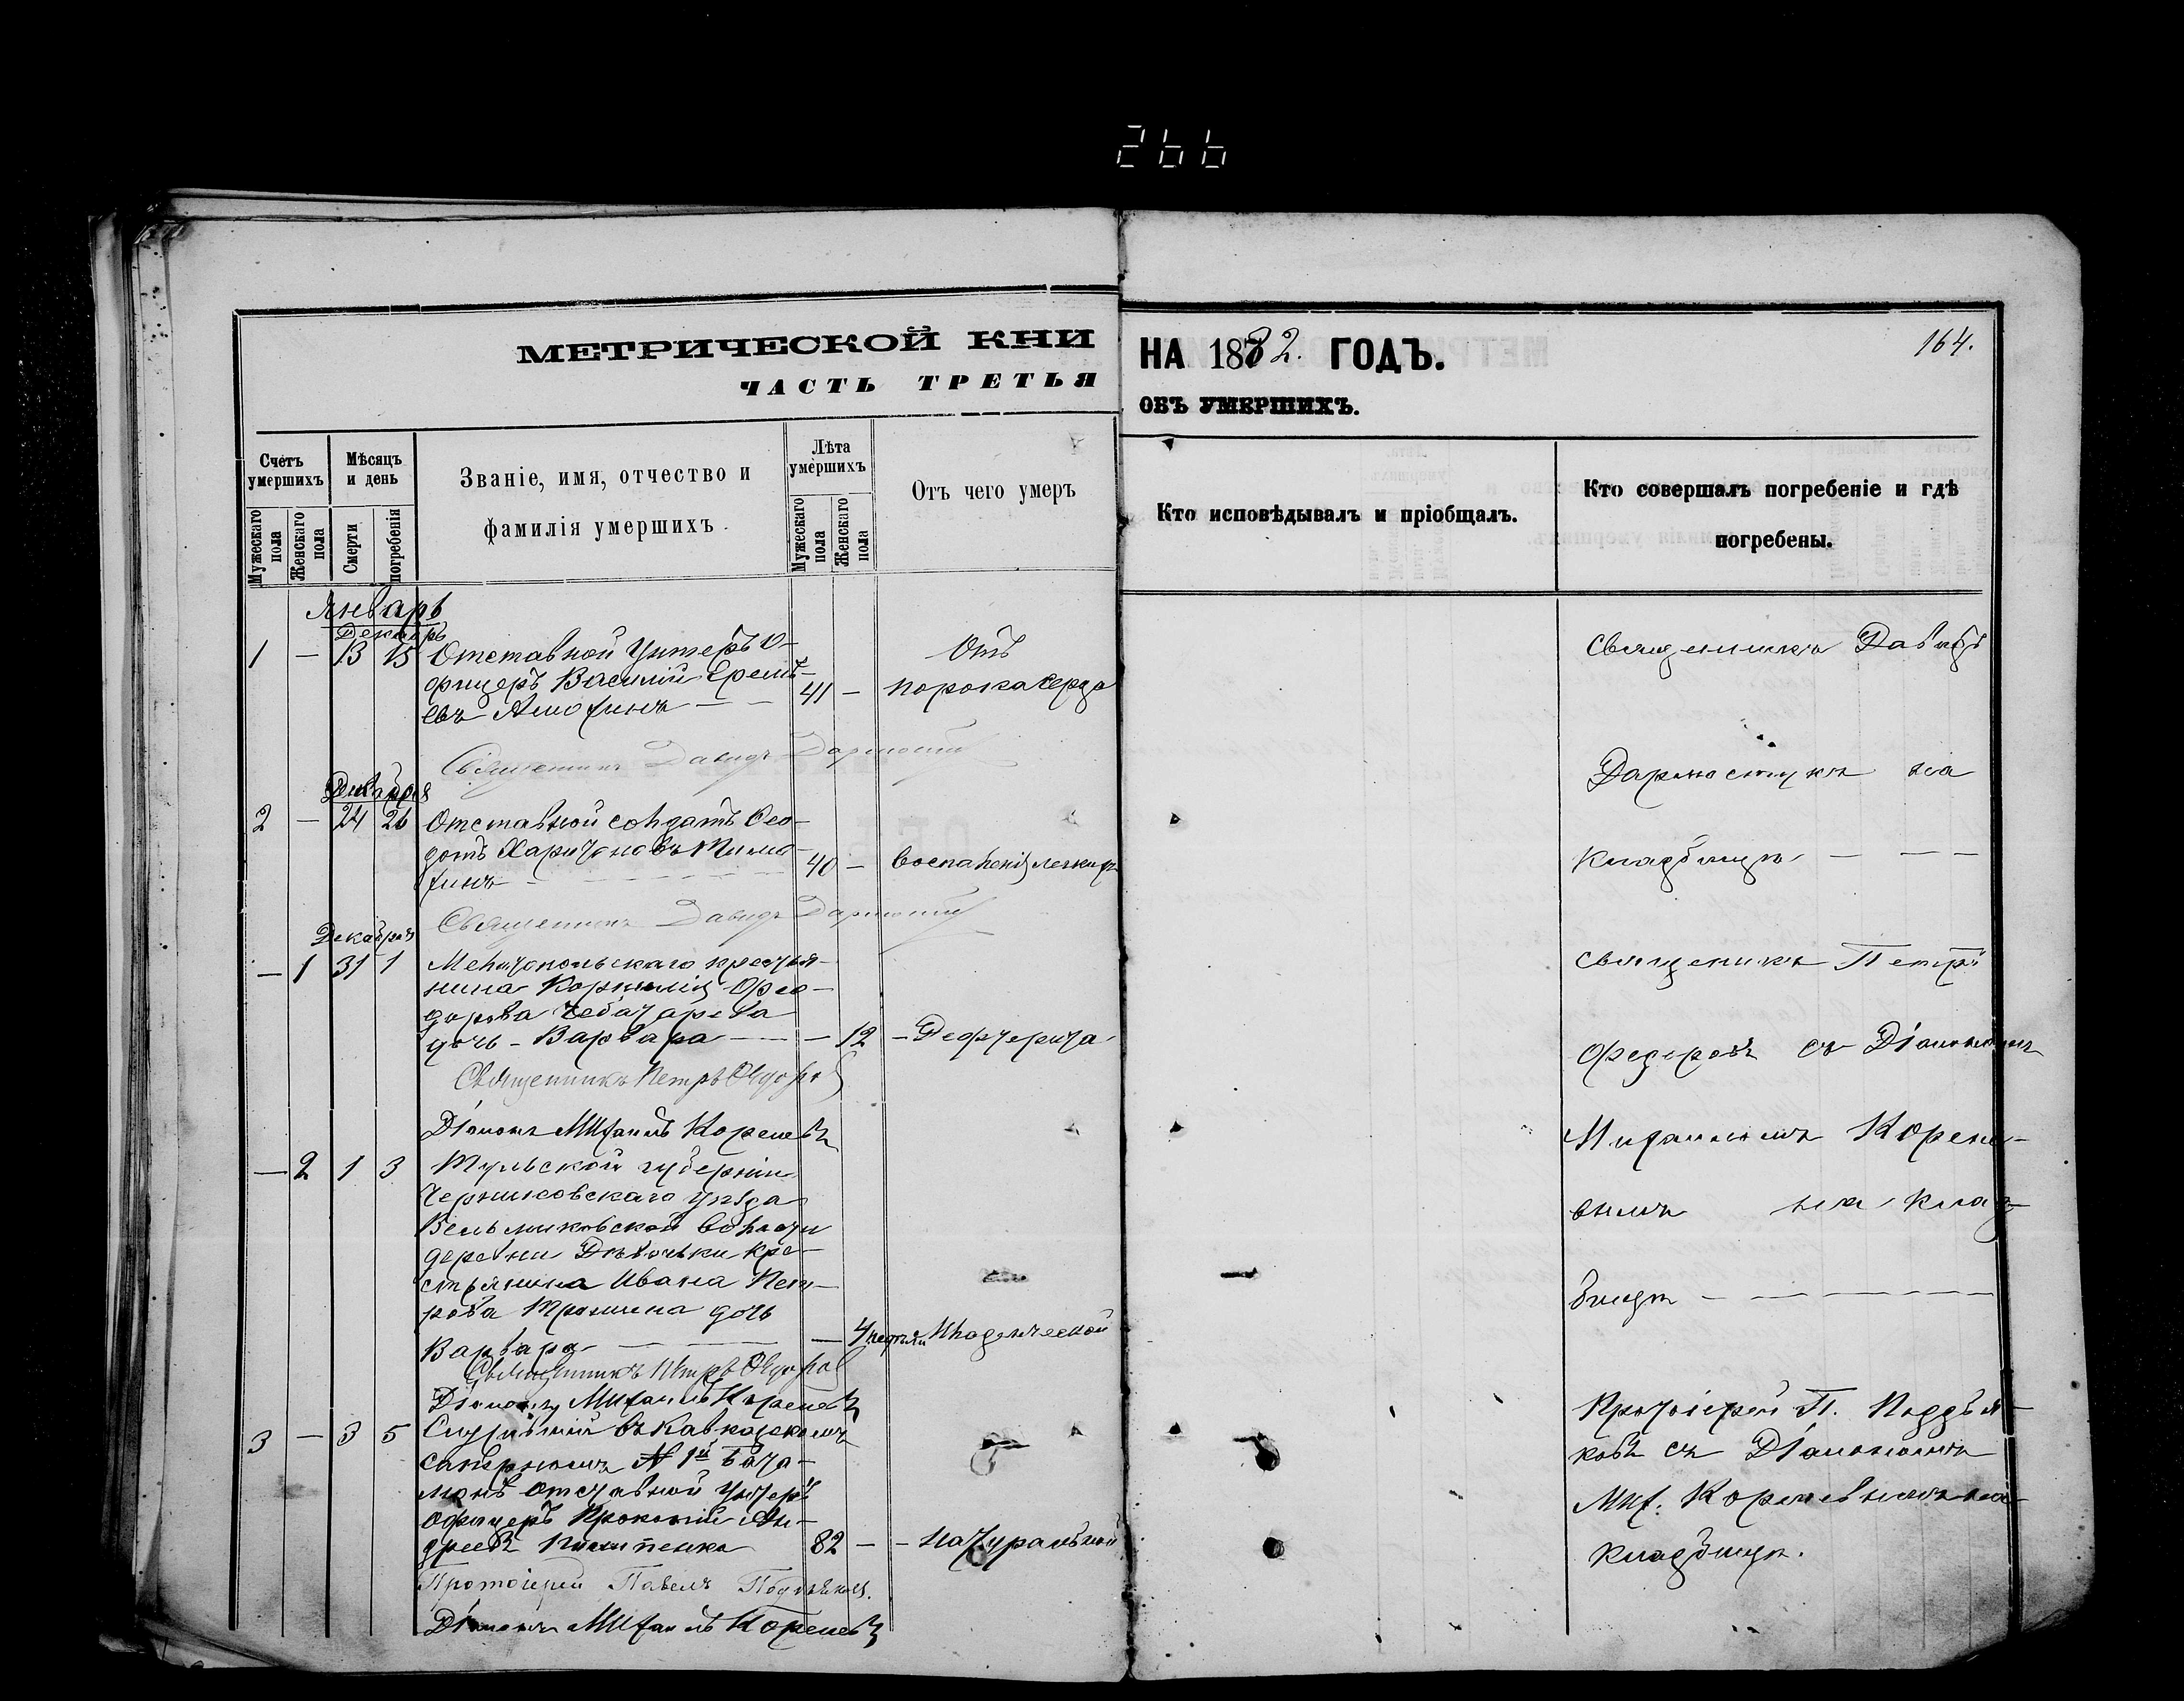 266
МЕТРИЧЕСКОЙ КНИ
ЧАСТЬ ТРЕТЬЯ
НА 1882. ГОДЪ.
164.
ОБЪ УМЕРШИХЪ.
Счетъ умершихъ
Мужескаго пола
Женскаго пола
Мѣсяцъ и день
Смерти
погребенія
Званіе, имя, отчество и
фамилія умершихъ.
Лѣта умершихъ
Мужескаго пола
Женскаго пола
Отъ чего умеръ
Кто исповѣдывалъ и пріобщалъ.
Кто совершалъ погребеніе и гдѣ
погребены.
Январь
Декабрь
1 — 13 15 Отставной Унтеръ О-
фицеръ Василій
евъ — — 41 —
Отъ
порока серца
Священникъ Давидъ
Священникъ Давидъ
на
Кладбищѣ — — —
Декабря
2 — 24 26 Отставной солдатъ Ѳео-
дотъ Харитоновъ
40 — Воспаленія легкихъ
Священникъ Давидъ
Декабря
— 1 31 1 Мелитопольскаго крестья-
нина Корнилія Ѳео-
дорова
дочь — Варвара — — 12 — Дефтерита
Священникъ Петръ Ѳедоровъ
Діаконъ Михаилъ Кореневъ
Священникъ Петръ
Федоровъ съ Діакономъ
Михаиломъ Корене-
вымъ на клад-
бищѣ — — — — — —
— 2 1 3 Тульской губерніи
уѣзда
волости
деревни кре-
стьянина Ивана Пет-
рова дочь
Варвара — — — 4 недѣли Младенческой
Священникъ Петръ Ѳедоровъ
Діаконъ Михаилъ Кореневъ
3 — 3 5 Служившій въ Кавказскомъ
саперномъ № 1й бата-
ліонѣ отставной Унтеръ
Офицеръ Прокопій Ан-
дреевъ 82 — — Натуральной
Протоіерей Павелъ Поддьяковъ.
Діаконъ Михаилъ Кореневъ
Протоіерей П. Поддья-
ковъ съ Діакономъ
Мих. Кореневымъ на
Кладбищѣ.